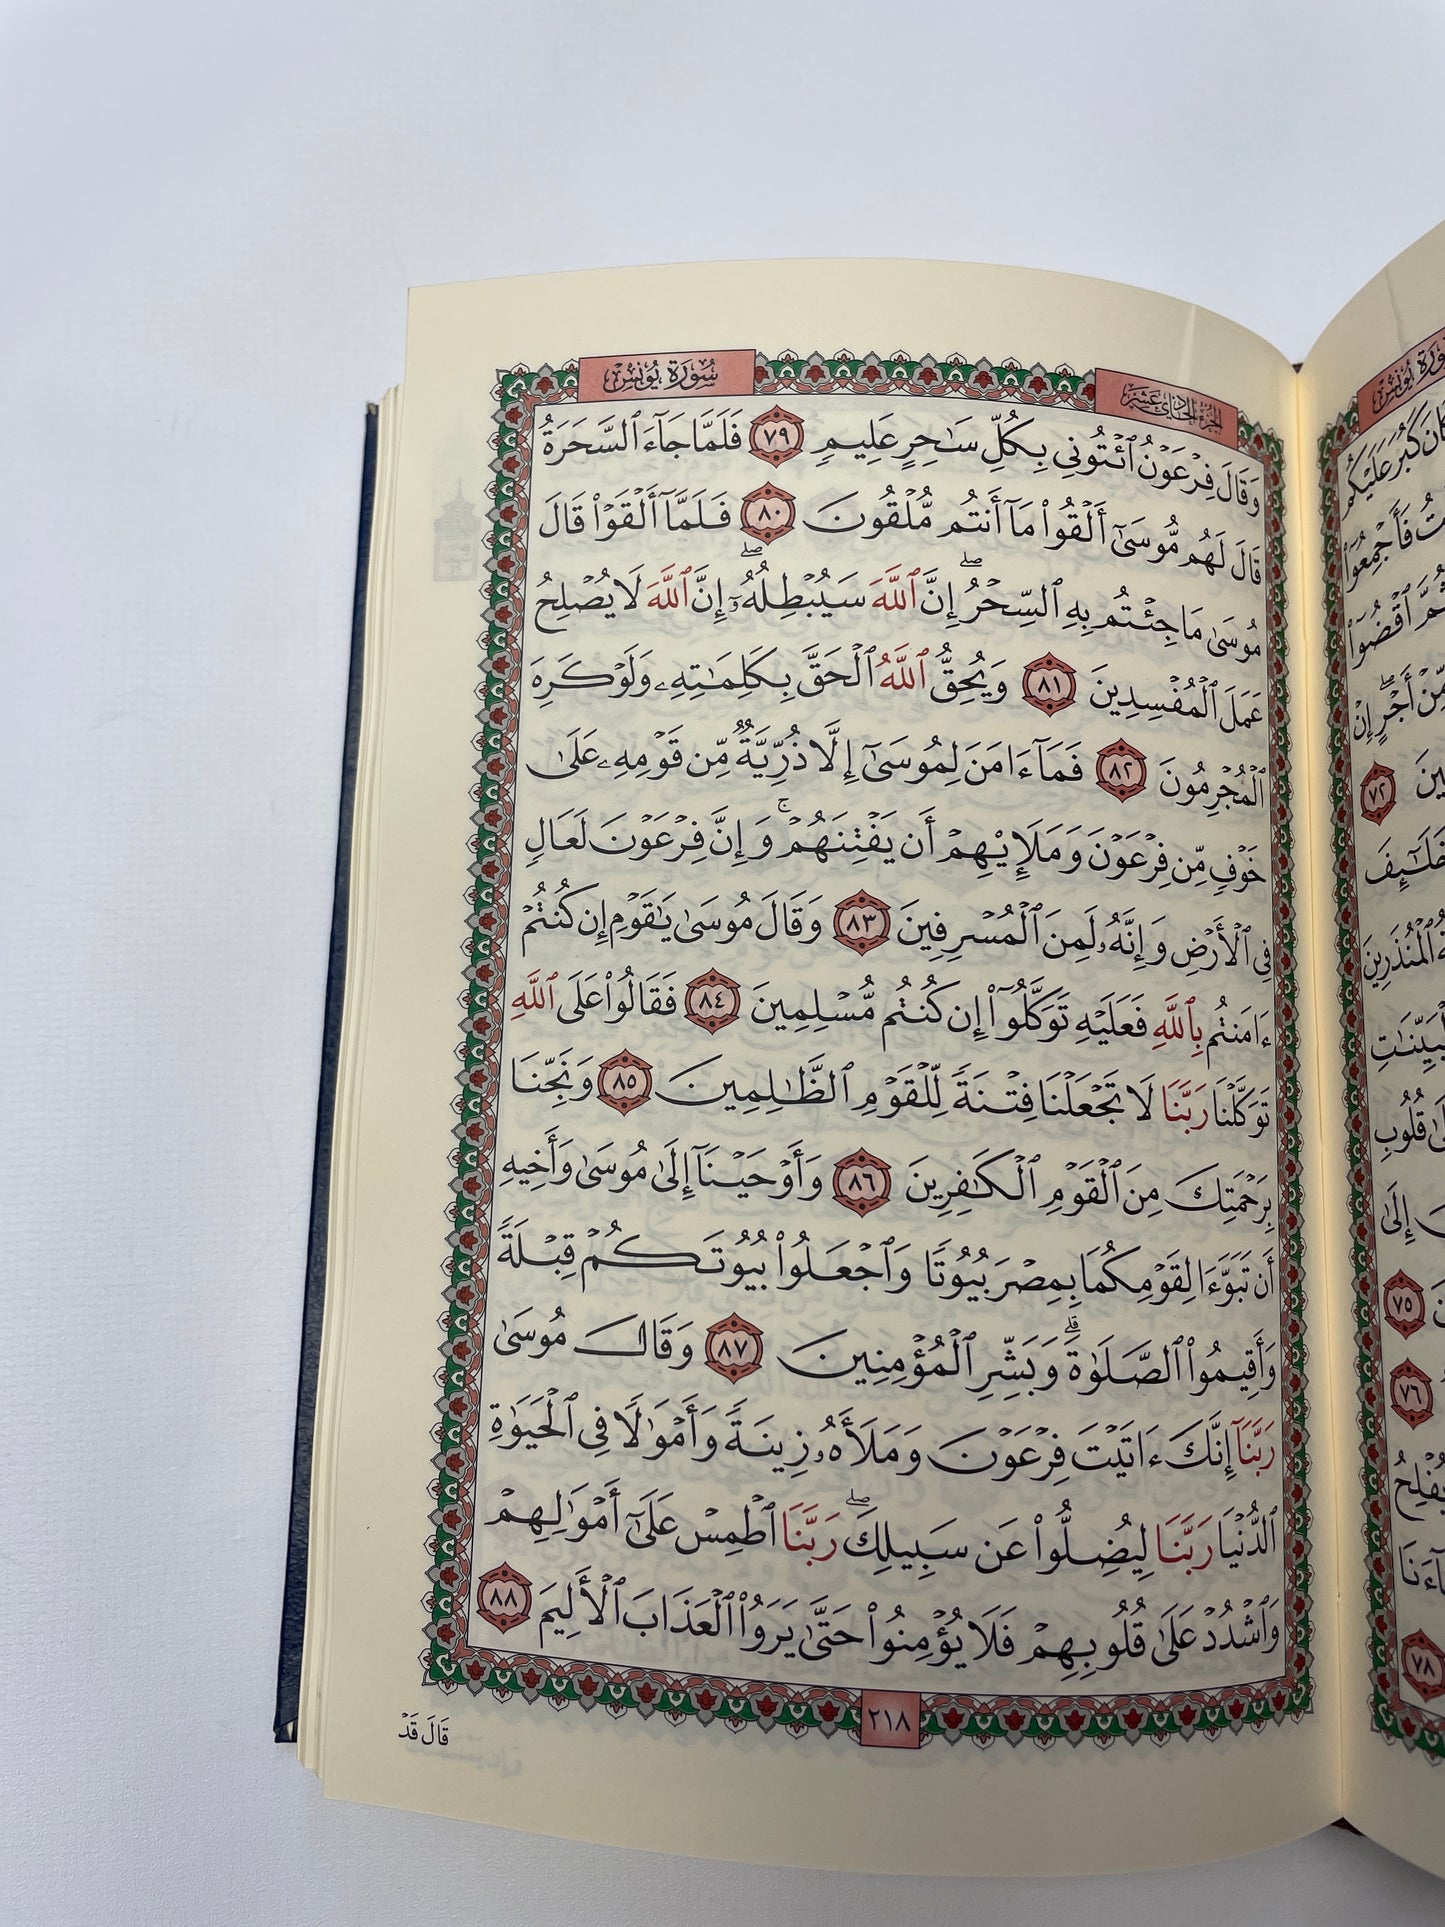 سُورَةُ يُونُسَ
الجُزءُ الحَادِي عَشَرَ
وَقَالَ فِرْعَوْنُ ٱئْتُونِي بِكُلِّ سَٰحِرٍ عَلِيمٍ ٧٩ فَلَمَّا جَآءَ ٱلسَّحَرَةُ
قَالَ لَهُم مُّوسَىٰٓ أَلْقُوا۟ مَآ أَنتُم مُّلْقُونَ ٨٠ فَلَمَّآ أَلْقَوْا۟ قَالَ
مُوسَىٰ مَا جِئْتُم بِهِ ٱلسِّحْرُ ۖ إِنَّ ٱللَّهَ سَيُبْطِلُهُۥٓ ۖ إِنَّ ٱللَّهَ لَا يُصْلِحُ
عَمَلَ ٱلْمُفْسِدِينَ ٨١ وَيُحِقُّ ٱللَّهُ ٱلْحَقَّ بِكَلِمَٰتِهِۦ وَلَوْ كَرِهَ
ٱلْمُجْرِمُونَ ٨٢ فَمَآ ءَامَنَ لِمُوسَىٰٓ إِلَّا ذُرِّيَّةٌ مِّن قَوْمِهِۦ عَلَىٰ
خَوْفٍ مِّن فِرْعَوْنَ وَمَلَإِي۟هِمْ أَن يَفْتِنَهُمْ ۚ وَإِنَّ فِرْعَوْنَ لَعَالٍ
فِي ٱلْأَرْضِ وَإِنَّهُۥ لَمِنَ ٱلْمُسْرِفِينَ ٨٣ وَقَالَ مُوسَىٰ يَٰقَوْمِ إِن كُنتُمْ
ءَامَنتُم بِٱللَّهِ فَعَلَيْهِ تَوَكَّلُوٓا۟ إِن كُنتُم مُّسْلِمِينَ ٨٤ فَقَالُوا۟ عَلَى ٱللَّهِ
تَوَكَّلْنَا رَبَّنَا لَا تَجْعَلْنَا فِتْنَةً لِّلْقَوْمِ ٱلظَّٰلِمِينَ ٨٥ وَنَجِّنَا
بِرَحْمَتِكَ مِنَ ٱلْقَوْمِ ٱلْكَٰفِرِينَ ٨٦ وَأَوْحَيْنَآ إِلَىٰ مُوسَىٰ وَأَخِيهِ
أَن تَبَوَّءَا لِقَوْمِكُمَا بِمِصْرَ بُيُوتًا وَٱجْعَلُوا۟ بُيُوتَكُمْ قِبْلَةً
وَأَقِيمُوا۟ ٱلصَّلَوٰةَ ۗ وَبَشِّرِ ٱلْمُؤْمِنِينَ ٨٧ وَقَالَ مُوسَىٰ
رَبَّنَآ إِنَّكَ ءَاتَيْتَ فِرْعَوْنَ وَمَلَأَهُۥ زِينَةً وَأَمْوَٰلًا فِي ٱلْحَيَوٰةِ
ٱلدُّنْيَا رَبَّنَا لِيُضِلُّوا۟ عَن سَبِيلِكَ ۖ رَبَّنَا ٱطْمِسْ عَلَىٰٓ أَمْوَٰلِهِمْ
وَٱشْدُدْ عَلَىٰ قُلُوبِهِمْ فَلَا يُؤْمِنُوا۟ حَتَّىٰ يَرَوُا۟ ٱلْعَذَابَ ٱلْأَلِيمَ ٨٨
٢١٨
قَالَ قَدْ
سُورَةُ يُونُسَ
كَبُرَ عَلَيْكُم
فَأَجْمِعُوٓا۟
ٱقْضُوٓا۟
مِّنْ أَجْرٍ ۖ إِنْ
٧٢
خَلَٰٓئِفَ
ٱلْمُنذَرِينَ
إِلَىٰ
قُلُوبِ
٧٥
٧٦
٧٨